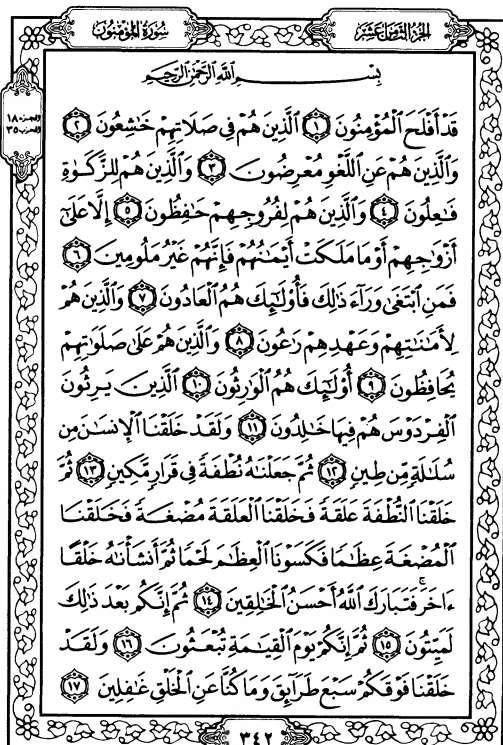 سُورَةُ المُؤْمِنُونَ
الجُزْءُ الثَّامِنَ عَشَرَ
الجزء ١٨
الحزب ٣٥
بِسْمِ اللَّهِ الرَّحْمَٰنِ الرَّحِيمِ
قَدْ أَفْلَحَ الْمُؤْمِنُونَ ١ الَّذِينَ هُمْ فِي صَلَاتِهِمْ خَاشِعُونَ ٢
وَالَّذِينَ هُمْ عَنِ اللَّغْوِ مُعْرِضُونَ ٣ وَالَّذِينَ هُمْ لِلزَّكَوٰةِ
فَاعِلُونَ ٤ وَالَّذِينَ هُمْ لِفُرُوجِهِمْ حَافِظُونَ ٥ إِلَّا عَلَىٰ
أَزْوَاجِهِمْ أَوْ مَا مَلَكَتْ أَيْمَٰنُهُمْ فَإِنَّهُمْ غَيْرُ مَلُومِينَ ٦
فَمَنِ ابْتَغَىٰ وَرَآءَ ذَٰلِكَ فَأُوْلَٰٓئِكَ هُمُ الْعَادُونَ ٧ وَالَّذِينَ هُمْ
لِأَمَٰنَٰتِهِمْ وَعَهْدِهِمْ رَٰعُونَ ٨ وَالَّذِينَ هُمْ عَلَىٰ صَلَوَٰتِهِمْ
يُحَافِظُونَ ٩ أُوْلَٰٓئِكَ هُمُ الْوَارِثُونَ ١٠ الَّذِينَ يَرِثُونَ
الْفِرْدَوْسَ هُمْ فِيهَا خَالِدُونَ ١١ وَلَقَدْ خَلَقْنَا الْإِنسَٰنَ مِن
سُلَٰلَةٍ مِّن طِينٍ ١٢ ثُمَّ جَعَلْنَٰهُ نُطْفَةً فِي قَرَارٍ مَّكِينٍ ١٣ ثُمَّ
خَلَقْنَا النُّطْفَةَ عَلَقَةً فَخَلَقْنَا الْعَلَقَةَ مُضْغَةً فَخَلَقْنَا
الْمُضْغَةَ عِظَٰمًا فَكَسَوْنَا الْعِظَٰمَ لَحْمًا ثُمَّ أَنشَأْنَٰهُ خَلْقًا
ءَاخَرَ ۚ فَتَبَارَكَ اللَّهُ أَحْسَنُ الْخَٰلِقِينَ ١٤ ثُمَّ إِنَّكُم بَعْدَ ذَٰلِكَ
لَمَيِّتُونَ ١٥ ثُمَّ إِنَّكُمْ يَوْمَ الْقِيَٰمَةِ تُبْعَثُونَ ١٦ وَلَقَدْ
خَلَقْنَا فَوْقَكُمْ سَبْعَ طَرَآئِقَ وَمَا كُنَّا عَنِ الْخَلْقِ غَٰفِلِينَ ١٧
٣٤٢